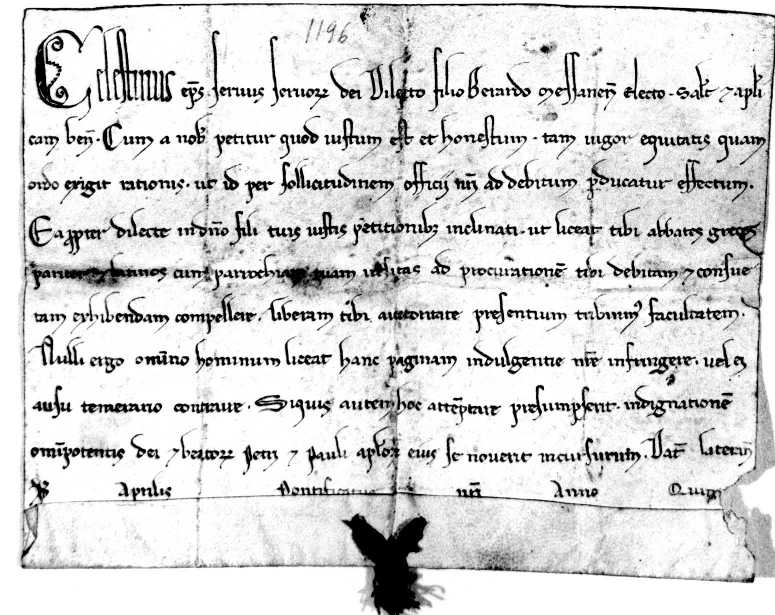 1196
Celestinus ep̄s servus servoꝝ dei Dilecto filio Berardo Messaneñ Electo. Salt̄ ⁊ apl̄i
cam ben̄. Cum a nob̄ petitur quod iustum est et honestum. tam vigor equitatis quam
ordo exigit rationis. ut id per sollicitudinem officij nr̄i ad debitum ꝑducatur effectum.
Eapropter dilecte in dn̄o fili tuis iustis petitionibꝫ inclinati. ut liceat tibi abbates grecos
pariter ⁊ latinos tam parrochianos quam ad procurationē tibi debitam ⁊ consue
tam exhibendam compellere. liberam tibi auctoritate presentium tribuimꝰ facultatem.
Nulli ergo omnino hominum liceat hanc paginam indulgentie nr̄e infringere. vel ei
ausu temerario contraire. Siquis autem hoc attēptare presumpserit. indignationē
omīpotentis dei ⁊ beatoꝝ Petri ⁊ Pauli aplōꝝ eius se noverit incursurum. Dat̄ Laterañ
Aprilis Pontificatus nr̄i Anno